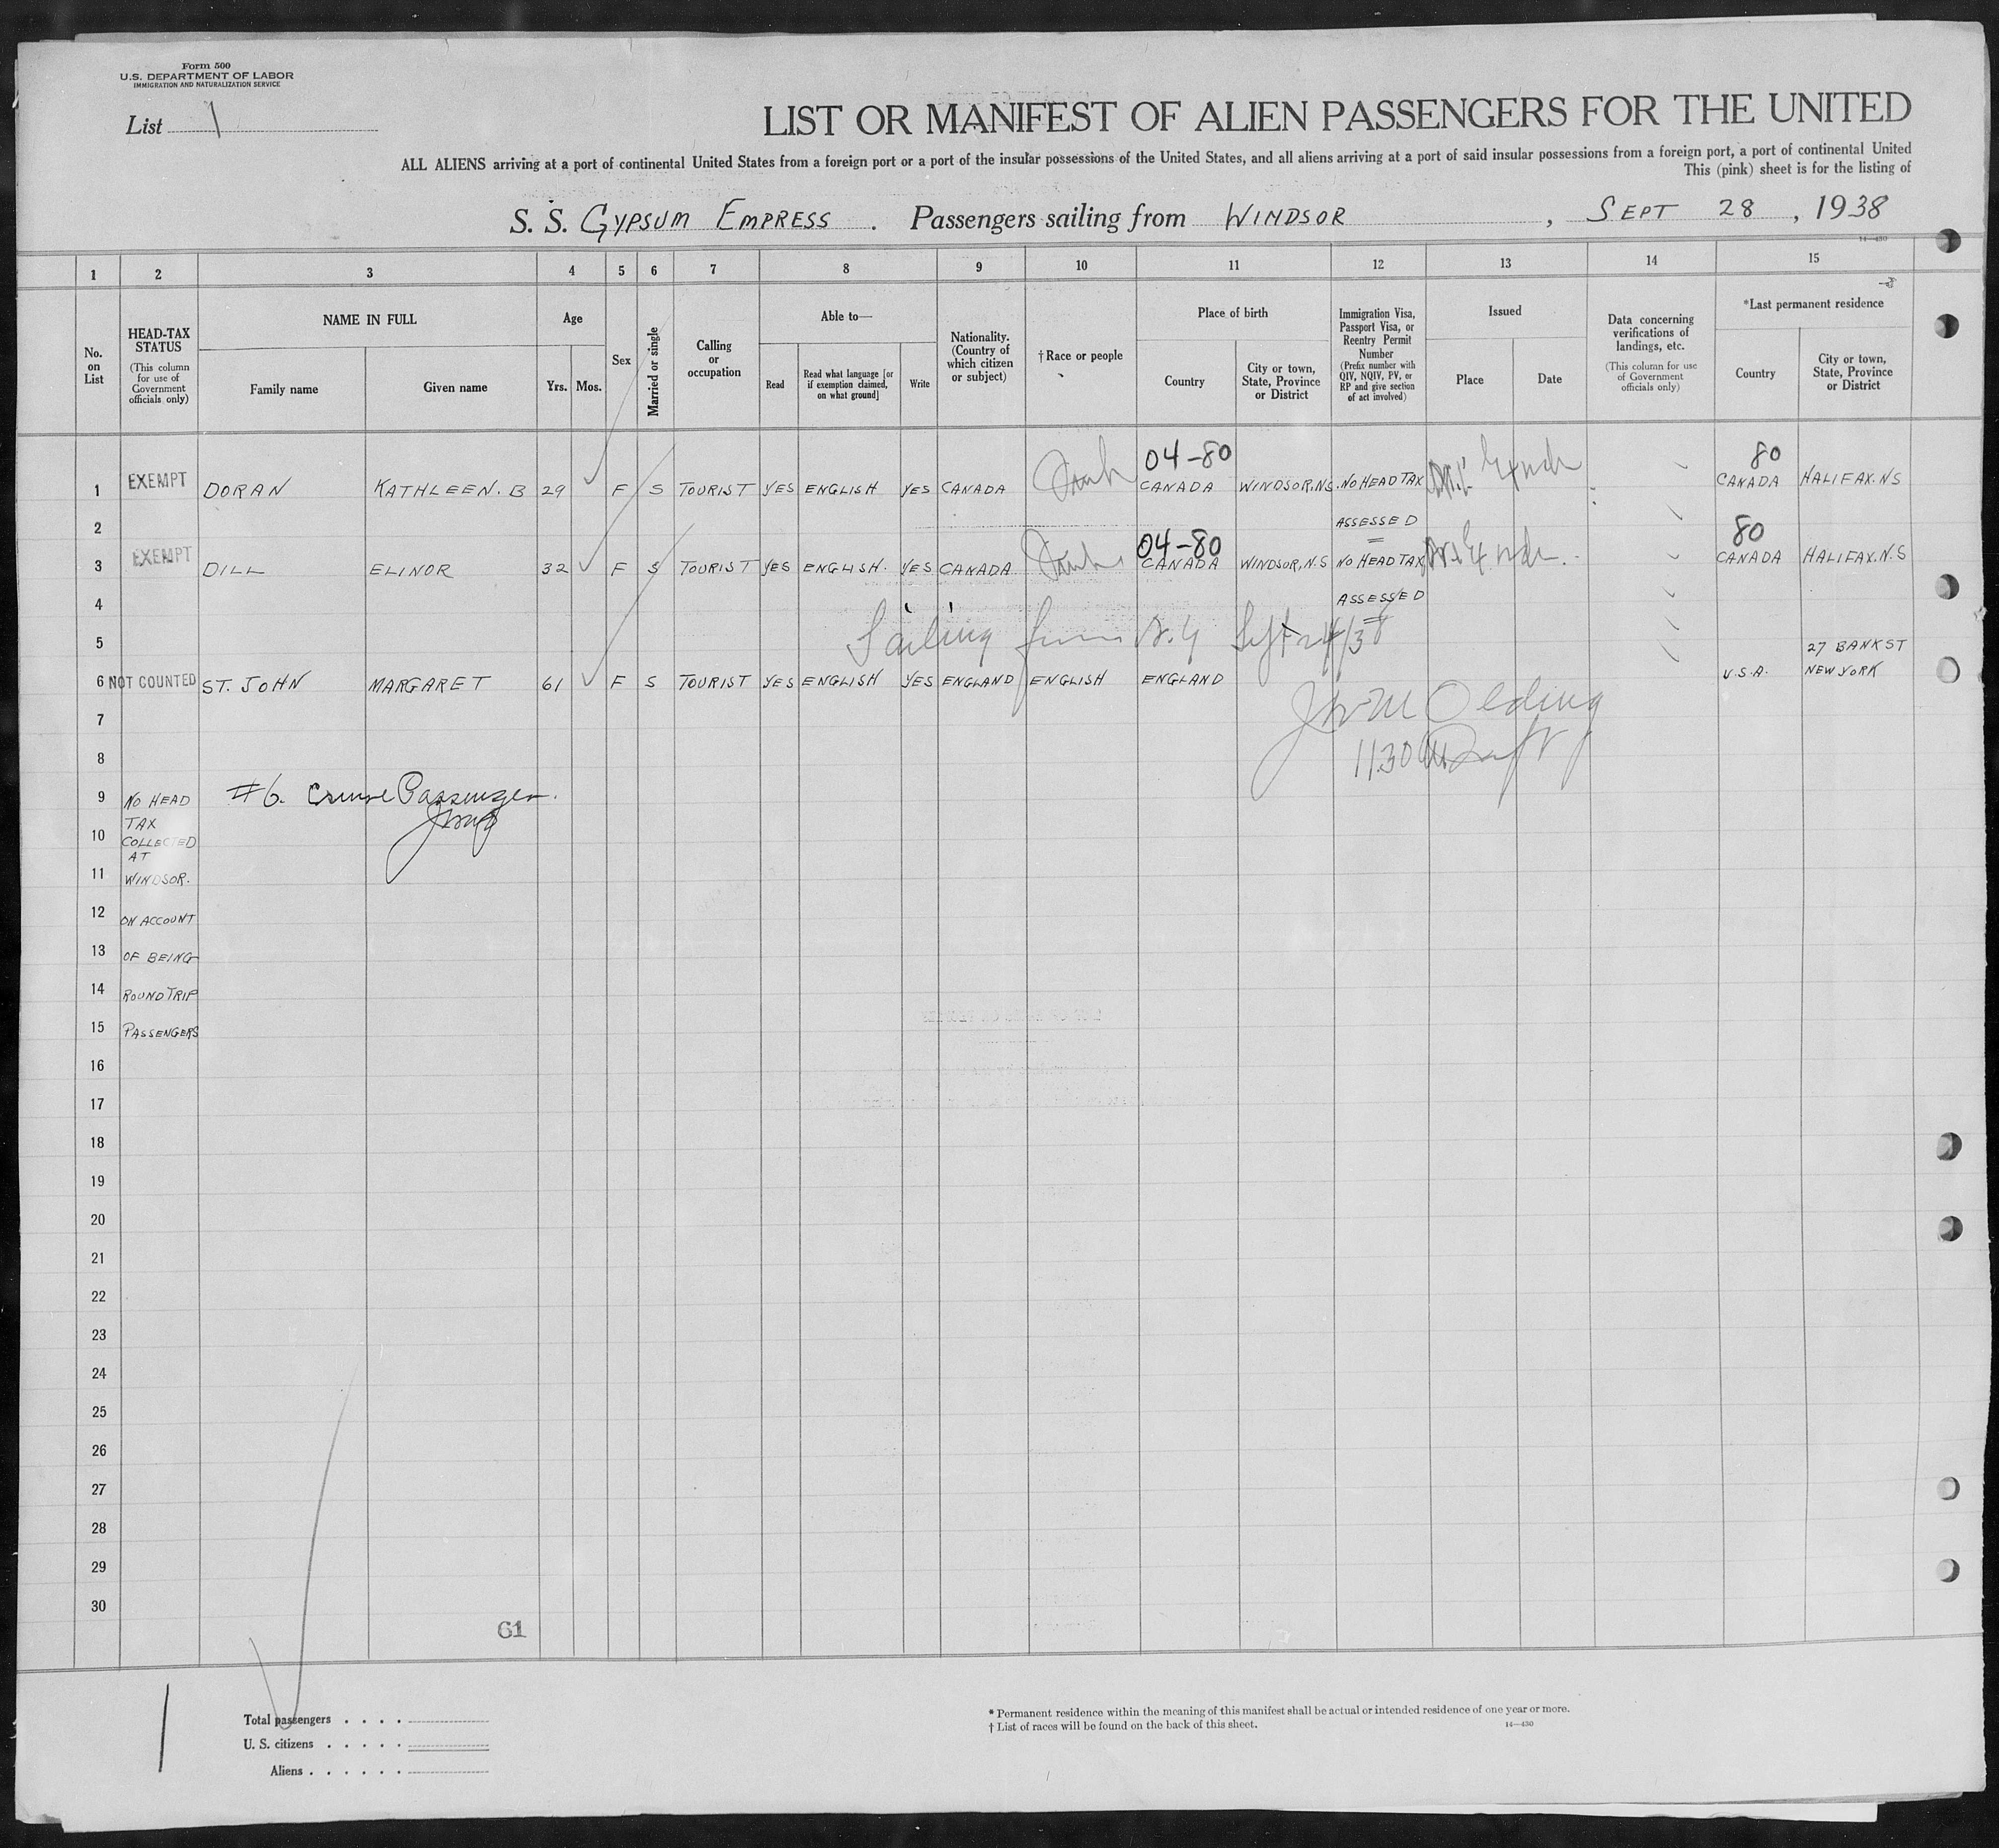 Form 500
U.S. DEPARTMENT OF LABOR
IMMIGRATION AND NATURALIZATION SERVICE
List 1
LIST OR MANIFEST OF ALIEN PASSENGERS FOR THE UNITED
ALL ALIENS arriving at a port of continental United States from a foreign port or a port of the insular possessions of the United States, and all aliens arriving at a port of said insular possessions from a foreign port, a port of continental United
This (pink) sheet is for the listing of
S. S. GYPSUM EMPRESS . Passengers sailing from WINDSOR , SEPT 28 , 1938
14—430
1 2 3 4 5 6 7 8 9 10 11 12 13 14 15
No. on List
HEAD-TAX STATUS
(This column for use of Government officials only)
NAME IN FULL
Family name
Given name
Age
Yrs.
Mos.
Sex
Married or single
Calling or occupation
Able to—
Read
Read what language [or if exemption claimed, on what ground]
Write
Nationality. (Country of which citizen or subject)
† Race or people
Place of birth
Country
City or town, State, Province or District
Immigration Visa, Passport Visa, or Reentry Permit Number
(Prefix number with QIV, NQIV, PV, or RP and give section of act involved)
Issued
Place
Date
Data concerning verifications of landings, etc.
(This column for use of Government officials only)
*Last permanent residence
Country
City or town, State, Province or District
04-80 80
1 EXEMPT DORAN KATHLEEN. B 29 F S TOURIST YES ENGLISH YES CANADA CANADA WINDSOR, NS. NO HEAD TAX CANADA HALIFAX. NS
2 ASSESSED
04-80 80
3 EXEMPT DILL ELINOR 32 F S TOURIST YES ENGLISH. YES CANADA CANADA WINDSOR, N.S NO HEAD TAX CANADA HALIFAX. N.S
4 ASSESSED
Sailing from N.Y Sept 24/38
5 27 BANK ST
6 NOT COUNTED ST. JOHN MARGARET 61 F S TOURIST YES ENGLISH YES ENGLAND ENGLISH ENGLAND U.S.A. NEW YORK
7
8 1130
9 NO HEAD #6. Cruise Passenger.
TAX
10 COLLECTED
AT
11 WINDSOR.
12 ON ACCOUNT
13 OF BEING
14 ROUND TRIP
15 PASSENGERS
16
17
18
19
20
21
22
23
24
25
26
27
28
29
30
61
1
Total passengers . . . .
U. S. citizens . . . . .
Aliens . . . . . .
* Permanent residence within the meaning of this manifest shall be actual or intended residence of one year or more.
† List of races will be found on the back of this sheet.
14—430